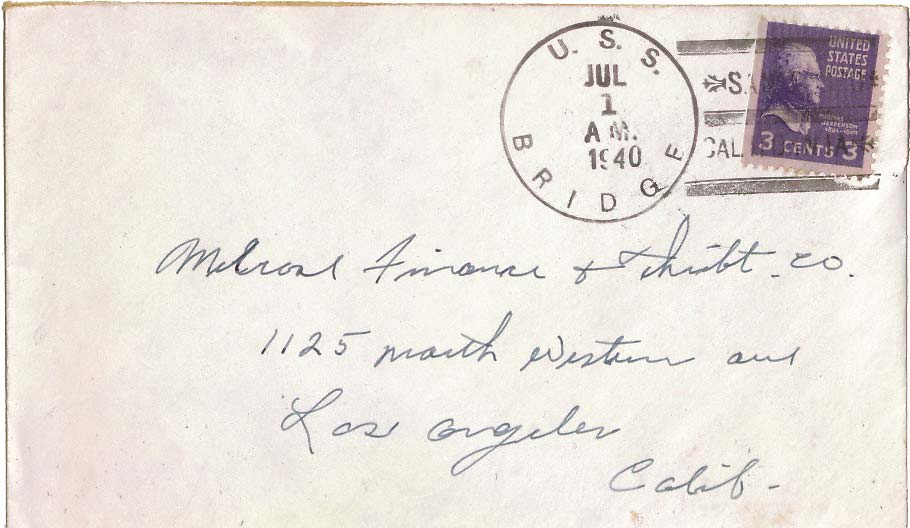 U. S. S.
BRIDGE
JUL
1
A M.
1940
UNITED
STATES
POSTAGE
THOMAS
JEFFERSON
3 CENTS 3
Melrose Finance & Thrift. co.
1125 North Western ave
Los Angeles
Calif-